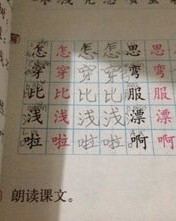 怎 怎 怎 怎 思 思
穿 穿 穿 穿 弯 弯
比 比 比 比 服 服
浅 浅 浅 浅 漂 漂
啦 啦 啦 啦 啊 啊
朗读课文。